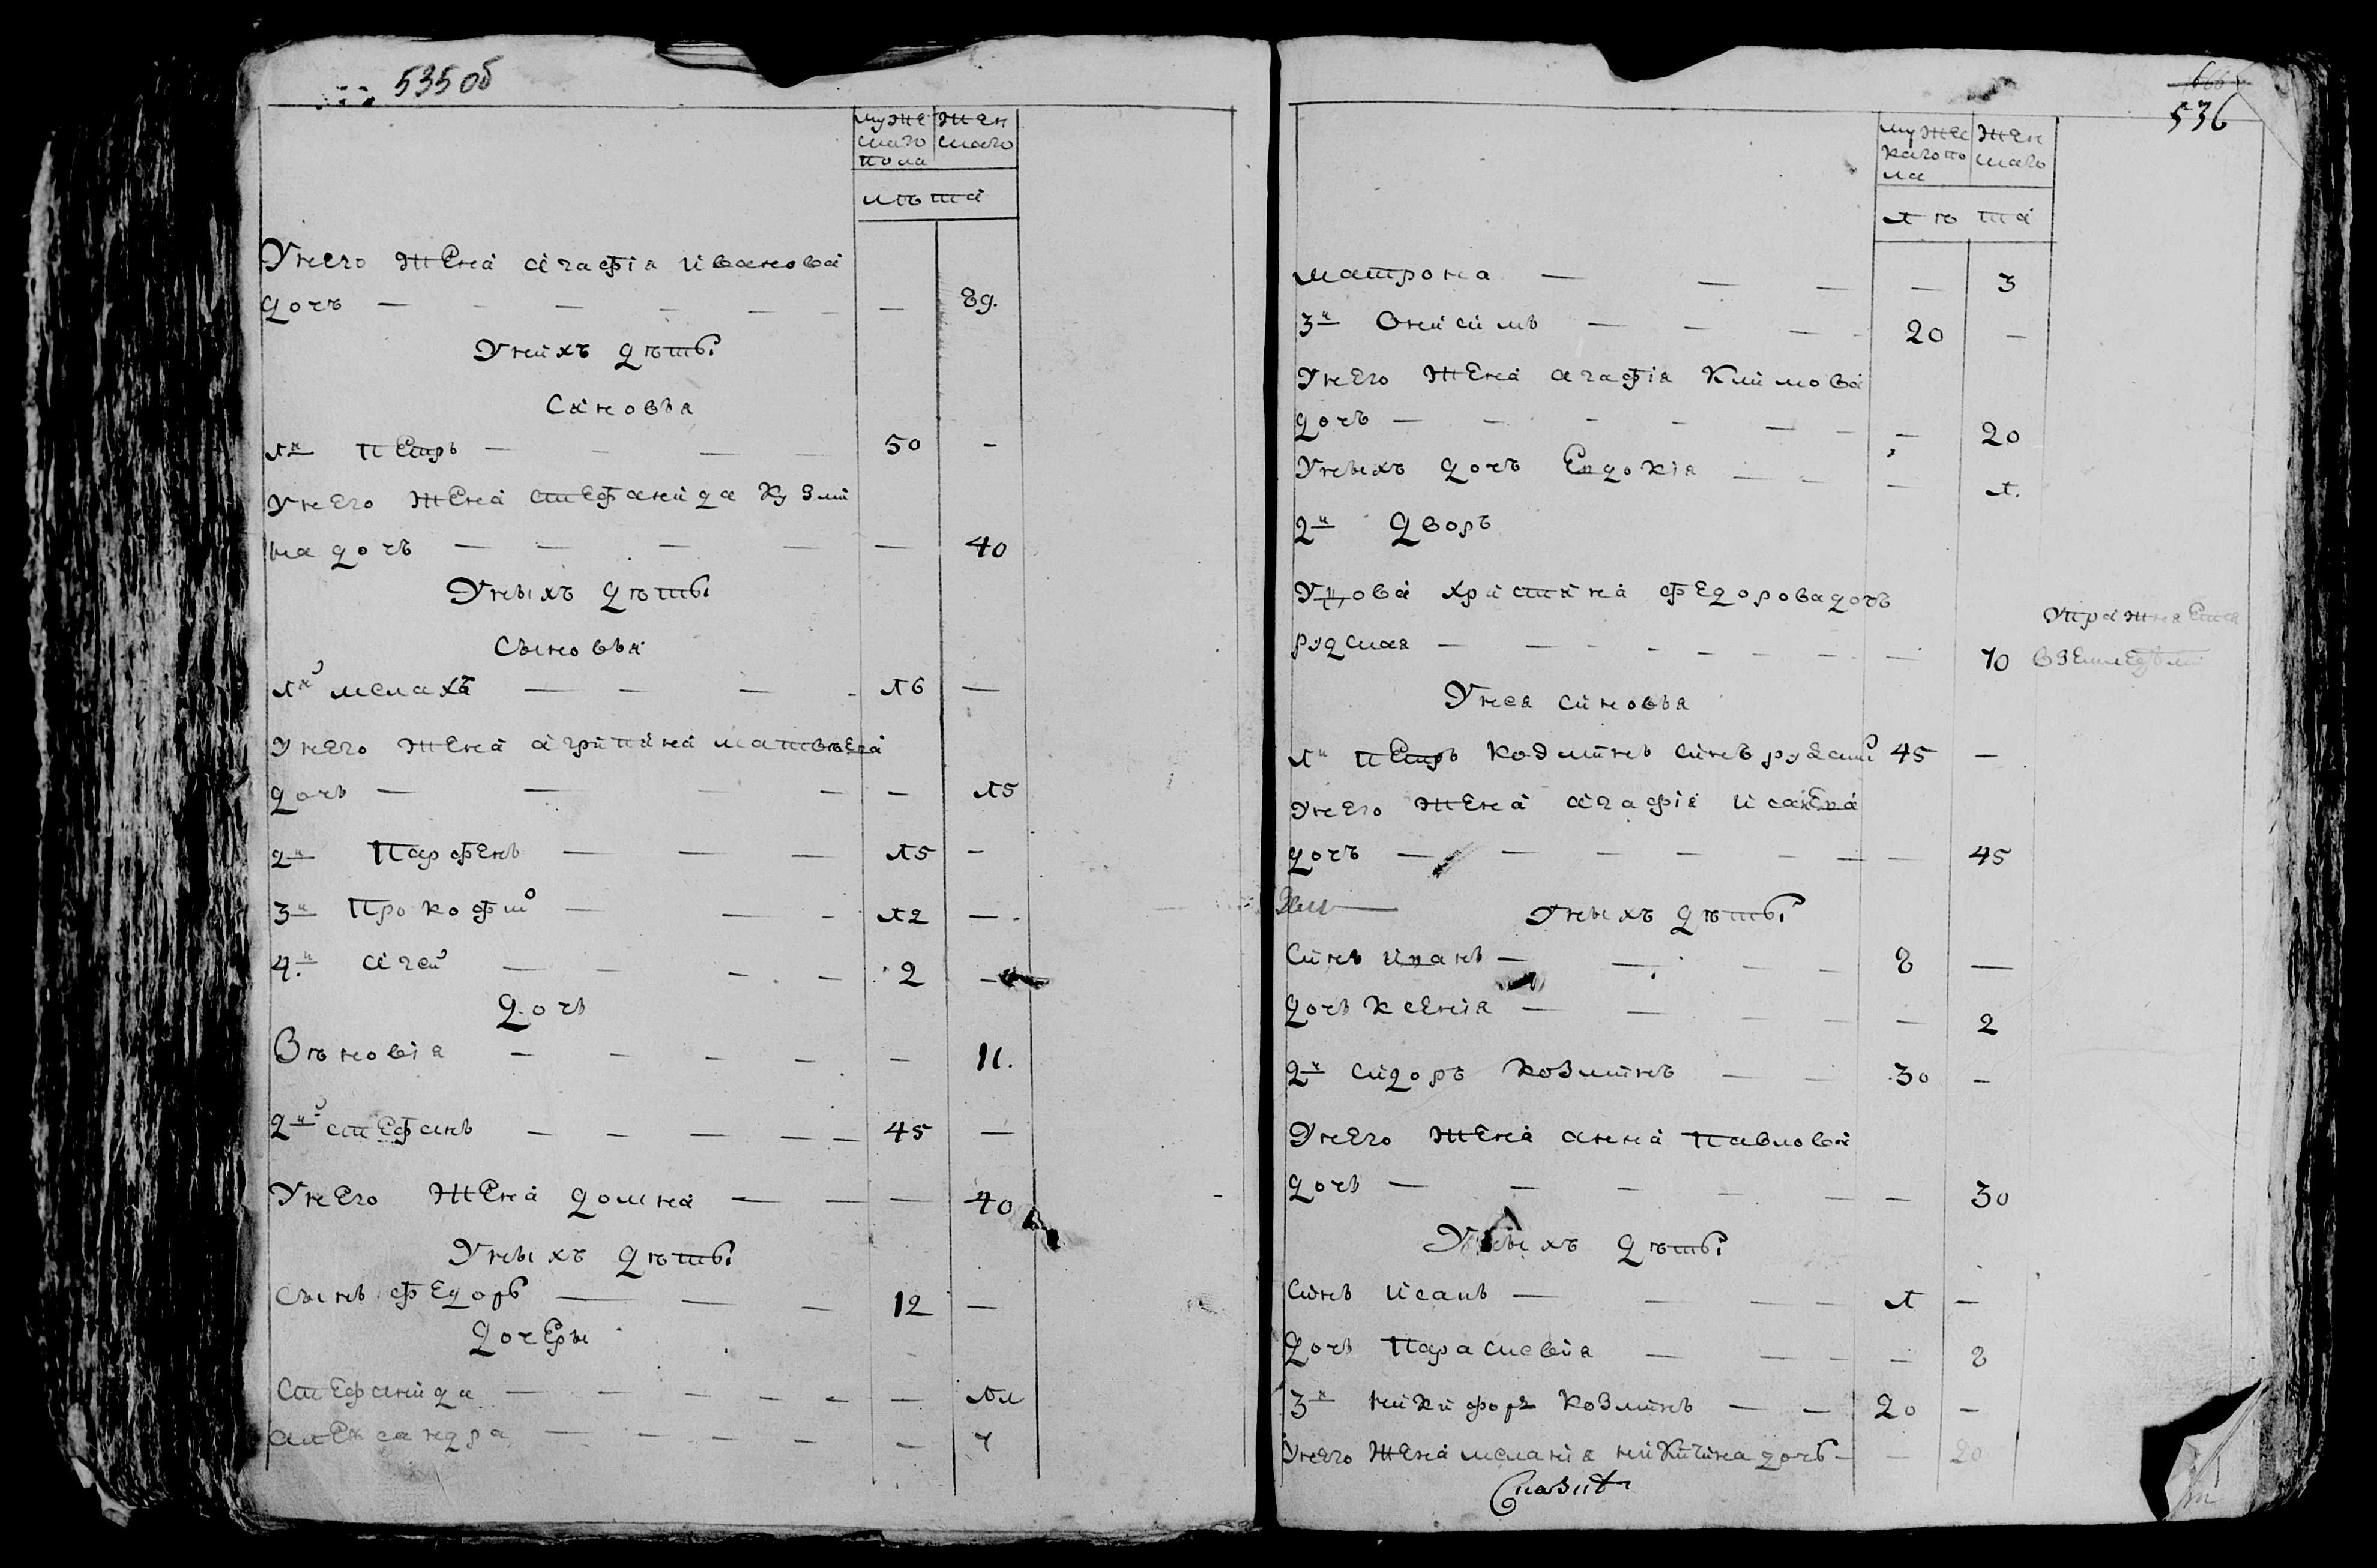 535об
муже
скаго
пола
жен
скаго
лѣта
Унего жена агафіа иванова
дочъ — 89.
Унихъ дѣты
Синовъя
1й Петръ — 50 —
Унего жена стефанида Кузми
на дочъ — 40
Уныхъ дѣты
Сыновъя
1й мелахъ — 16 —
Унего жена агрипина матвѣева
дочъ — 15
2й Парфенъ — 15 —
3й Прокофий — 12 —
4й агей — 2 —
Дочъ
Вѣновіа — 11.
2й стефанъ — 45 —
Унего жена домна — 40
Уныхъ дѣты
Сынъ федоръ — 12 —
Дочеры
Стефанида — 11
александра — 7
536
мужес
каго по
ла
жен
скаго
лѣта
матрона — 3
3й Онисимъ — 20 —
Унего жена агафіа Климова
дочъ — 20
Уныхъ дочъ Евдокіа — 1.
2й Дворъ
Удова христина федорова дочъ
рудская — 70
Упражняется
вземледѣлии
Унея синовъя
1й Петръ Козминъ синъ рудский 45 —
Унего жена агафіа исаева
дочъ — 45
Уныхъ дѣты
Синъ иванъ — 8 —
Дочъ Ксеніа — 2
2й сидоръ Козминъ — 30 —
Унего жена анна Павлова
дочъ — 30
Уныхъ дѣты
Синъ исакъ — 1 —
Дочъ Парасковіа — 8
3й никифоръ Козминъ — 20 —
Унего жена меланіа никитина дочъ — 20